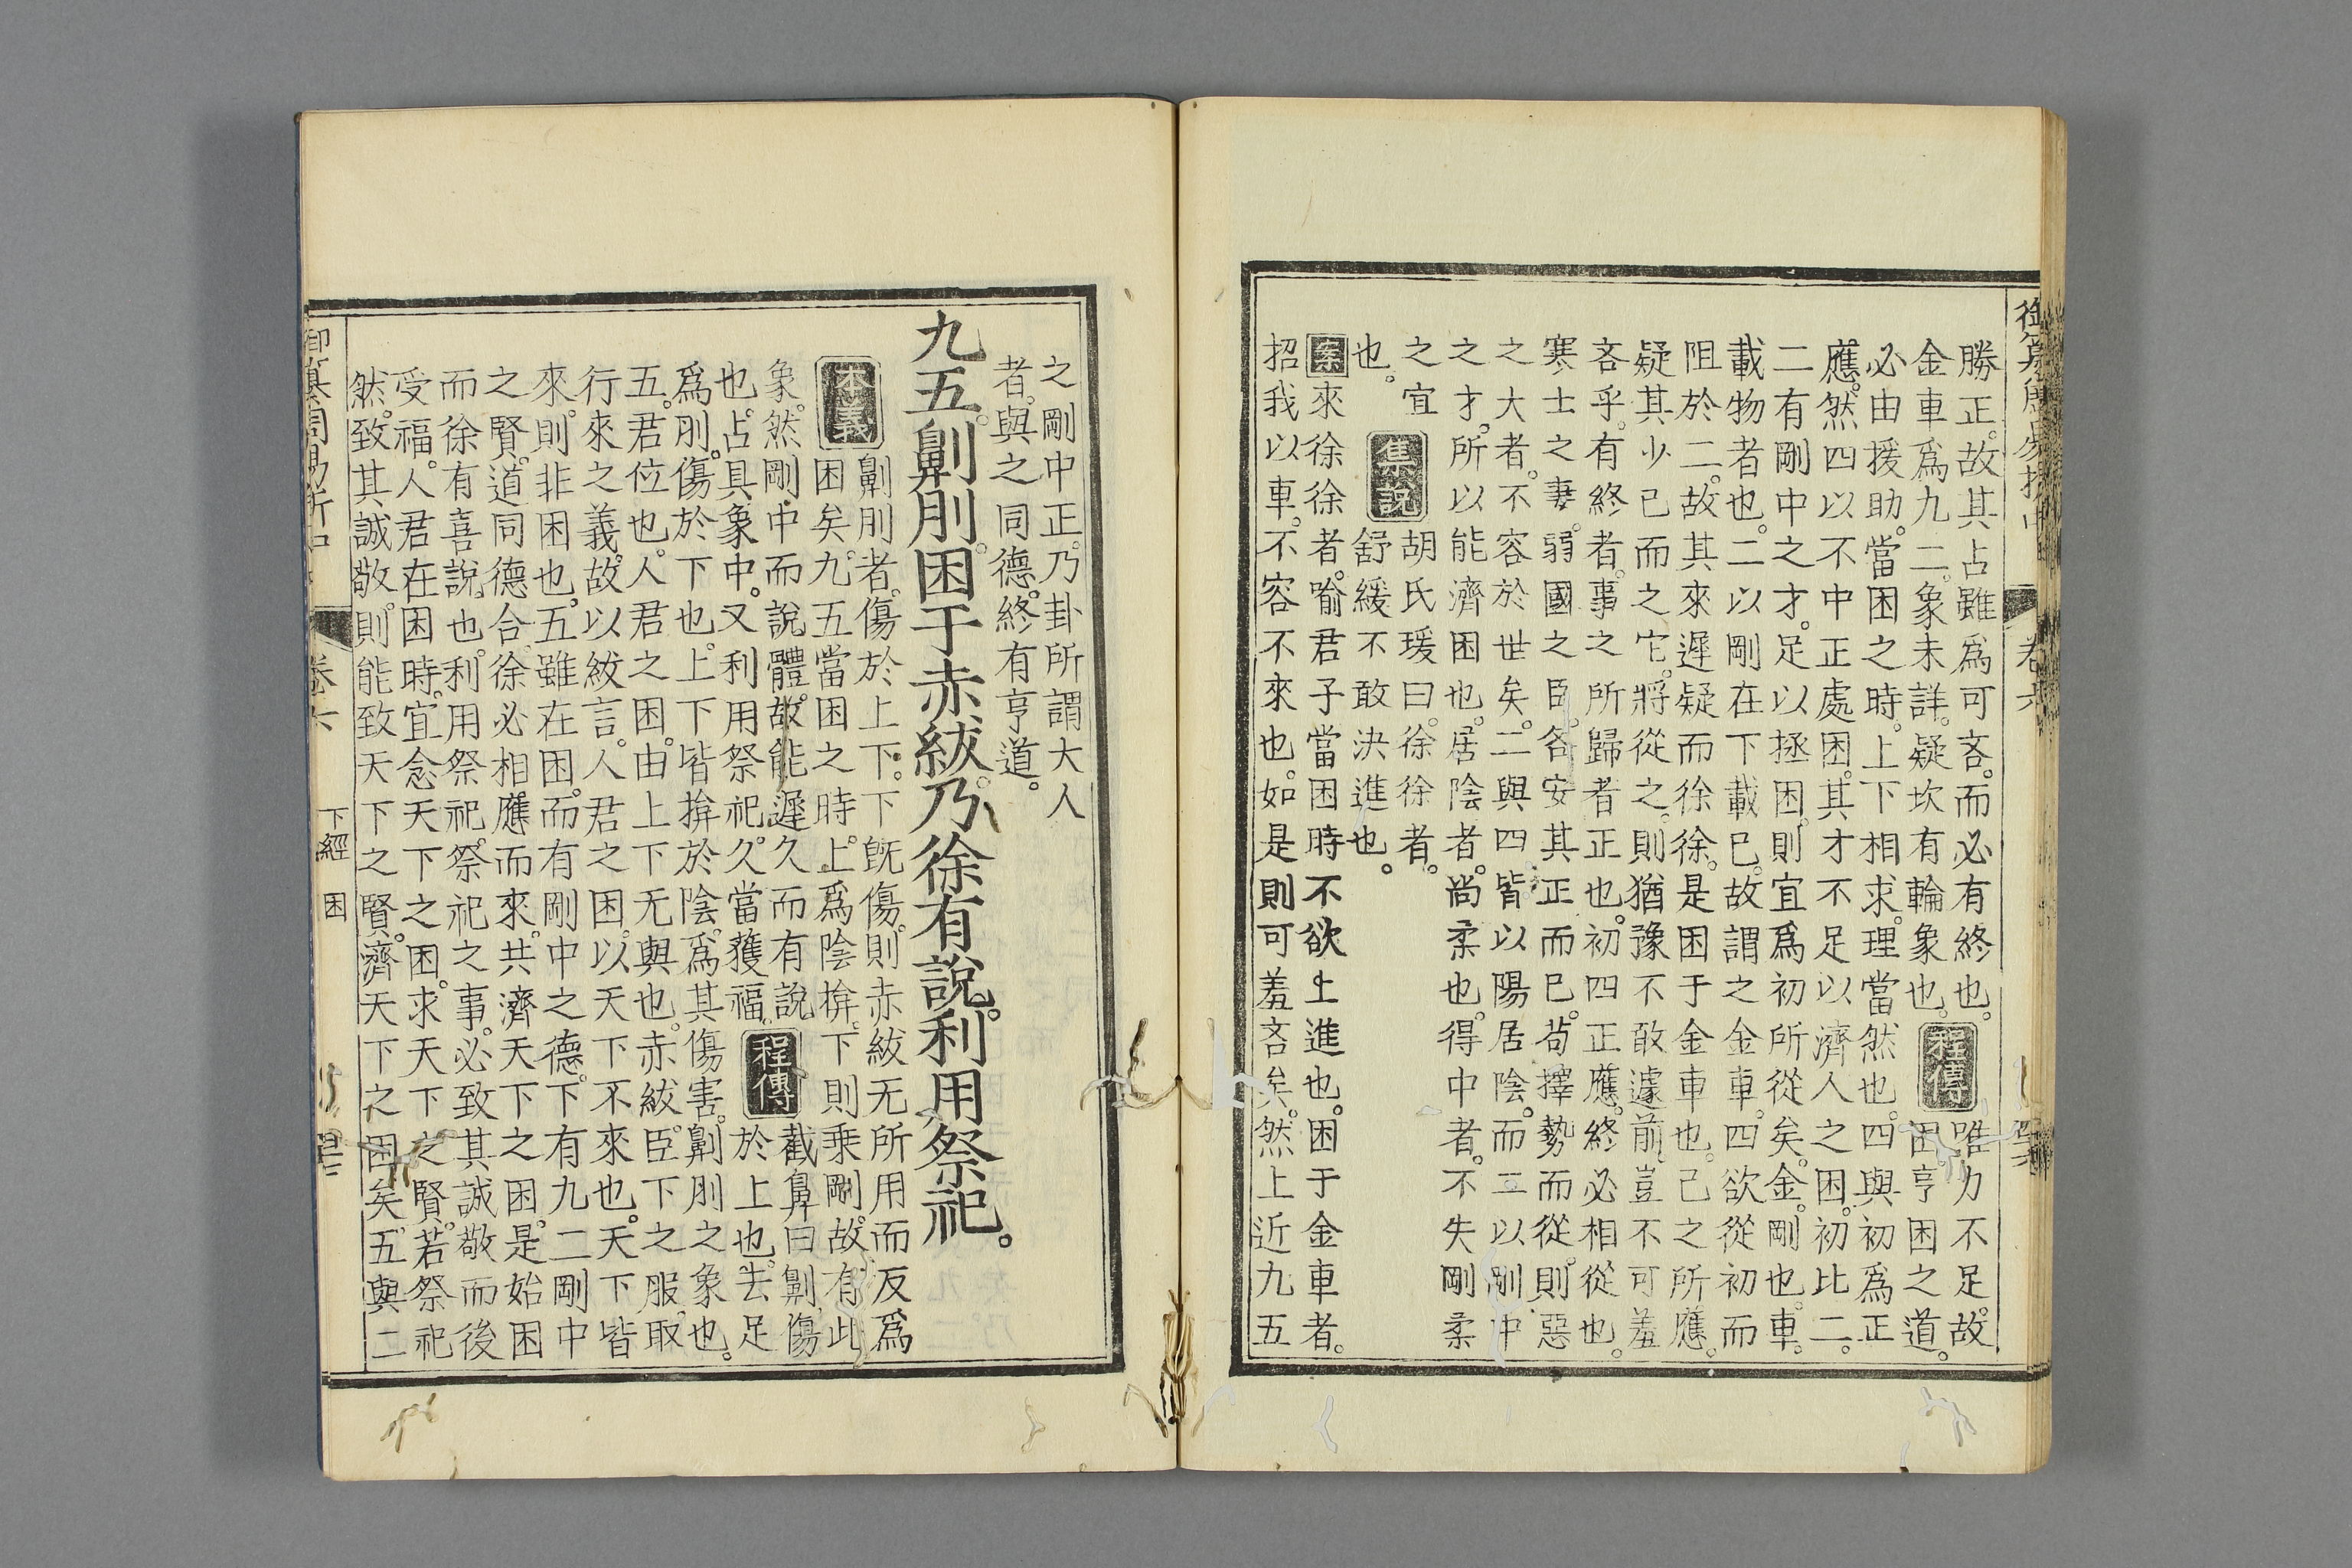 勝正。故其占雖爲可吝。而必有終也。唯力不足。故
金車爲九二。象未詳。疑坎有輪象也。程傳困亨困之道。
必由援助。當困之時。上下相求。理當然也。四與初爲正
應。然四以不中正處困。其才不足以濟人之困。初比二。
二有剛中之才。足以拯困。則宜爲初所從矣。金。剛也。車。
載物者也。二以剛在下載已。故謂之金車。四欲從初而
阻於二。故其來遲疑而徐徐。是困于金車也。己之所應。
疑其少已而之它。將從之。則猶豫不敢遽前。豈不可羞
吝乎。有終者。事之所歸者正也。初四正應。終必相從也。
寒士之妻。弱國之臣。各安其正而已。苟擇勢而從。則惡
之大者。不容於世矣。二與四皆以陽居陰。而二以剛中
之才。所以能濟困也。居陰者。尚柔也。得中者。不失剛柔
之宜
集說胡氏瑗曰。徐徐者。
也。舒緩不敢決進也。
案來徐徐者。喻君子當困時不欲上進也。困于金車者。
招我以車。不容不來也。如是則可羞吝矣。然上近九五
卷六
之剛中正。乃卦所謂大人
者。與之同德。終有亨道。
九五。劓刖。困于赤紱。乃徐有說。利用祭祀。
本義劓刖者。傷於上下。下旣傷。則赤紱无所用而反爲
困矣。九五當困之時。上爲陰揜。下則乘剛。故有此
象。然剛中而說體。故能遲久而有說
也。占具象中。又利用祭祀。久當獲福。程傳截鼻曰劓。傷
於上也。去足
爲刖。傷於下也。上下皆揜於陰。爲其傷害。劓刖之象也。
五。君位也。人君之困。由上下无與也。赤紱。臣下之服。取
行來之義。故以紱言。人君之困。以天下不來也。天下皆
來。則非困也。五雖在困。而有剛中之德。下有九二剛中
之賢。道同德合。徐必相應而來。共濟天下之困。是始困
而徐有喜說也。利用祭祀。祭祀之事。必致其誠敬。而後
受福。人君在困時。宜念天下之困。求天下之賢。若祭祀
然。致其誠敬。則能致天下之賢。濟天下之困矣。五與二
御纂周易折中
卷六
下經
困